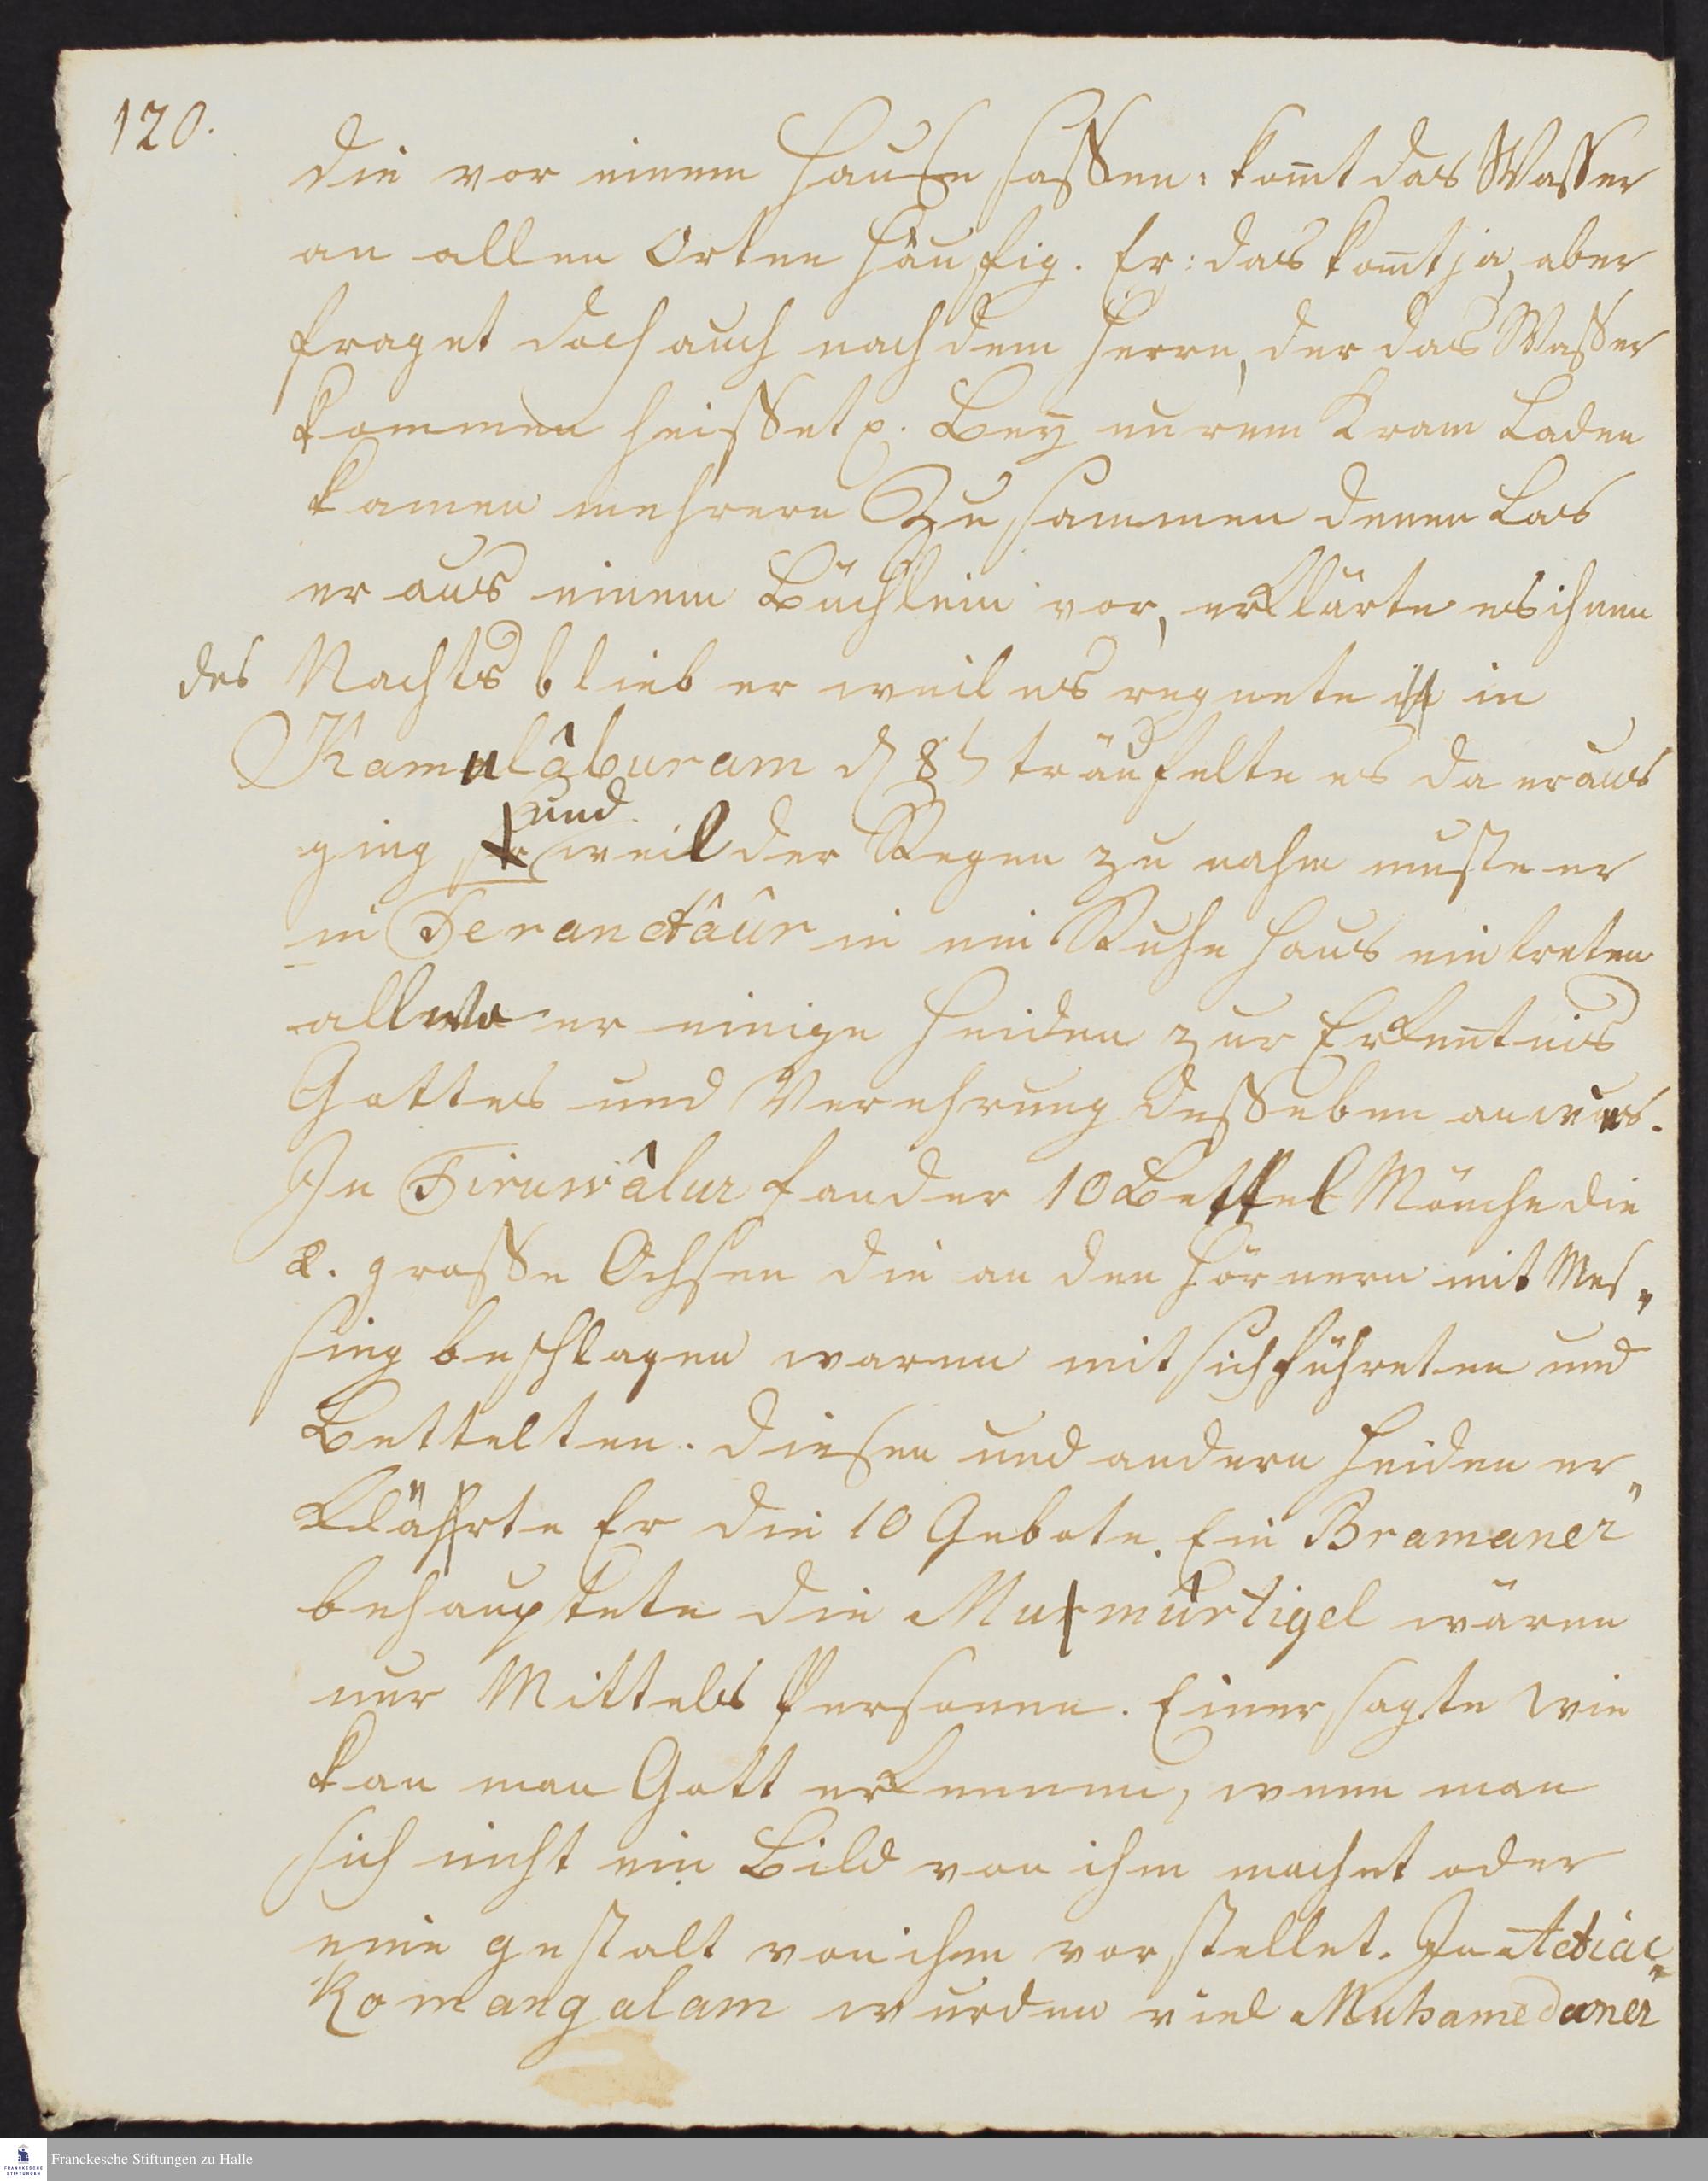 120.
die vor einem Hause sassen: kom̄t das Wasser
an allen Orten häufig. Er: das kom̄t ja, aber
fraget doch auch nach dem Herrn, der das Wasser
kommen heisset p. Bey eurem Kram Laden
kamen mehrere Zusammen denen Las
er aus einem Büchlein vor, erklärte es ihnen
des Nachts blieb er weil es regnete in
Kamalâburam d 8t träufelte es da er aus
ging und weil der Regen zu nahm muste er
in Feranctâûr in ein Ruhe Haus eintreten
allwo er einige Heiden zur Erkentnis
Gottes und Verehrung desselben anwies.
In Tiruwâlur fand er 10 Bettel Mönche die
2. grosse Ochsen die an den Hörnern mit Mes„
sing beschlagen waren mit sich führeten und
Bettelten. Diesen und andern Heiden er„
klährte Er die 10 Gebote. Ein Bramaner
behauptete die Mumûrtigel wären
nur Mittels Personen. Einer sagte wie
kan man Gott erkennen, wenn man
sich nicht ein Bild von ihm machet oder
eine gestalt von ihm vorstellet. In Actiac„
komangalam wurden viel Muhamedaner
Franckesche Stiftungen zu Halle
FRANCKESCHE
STIFTUNGEN